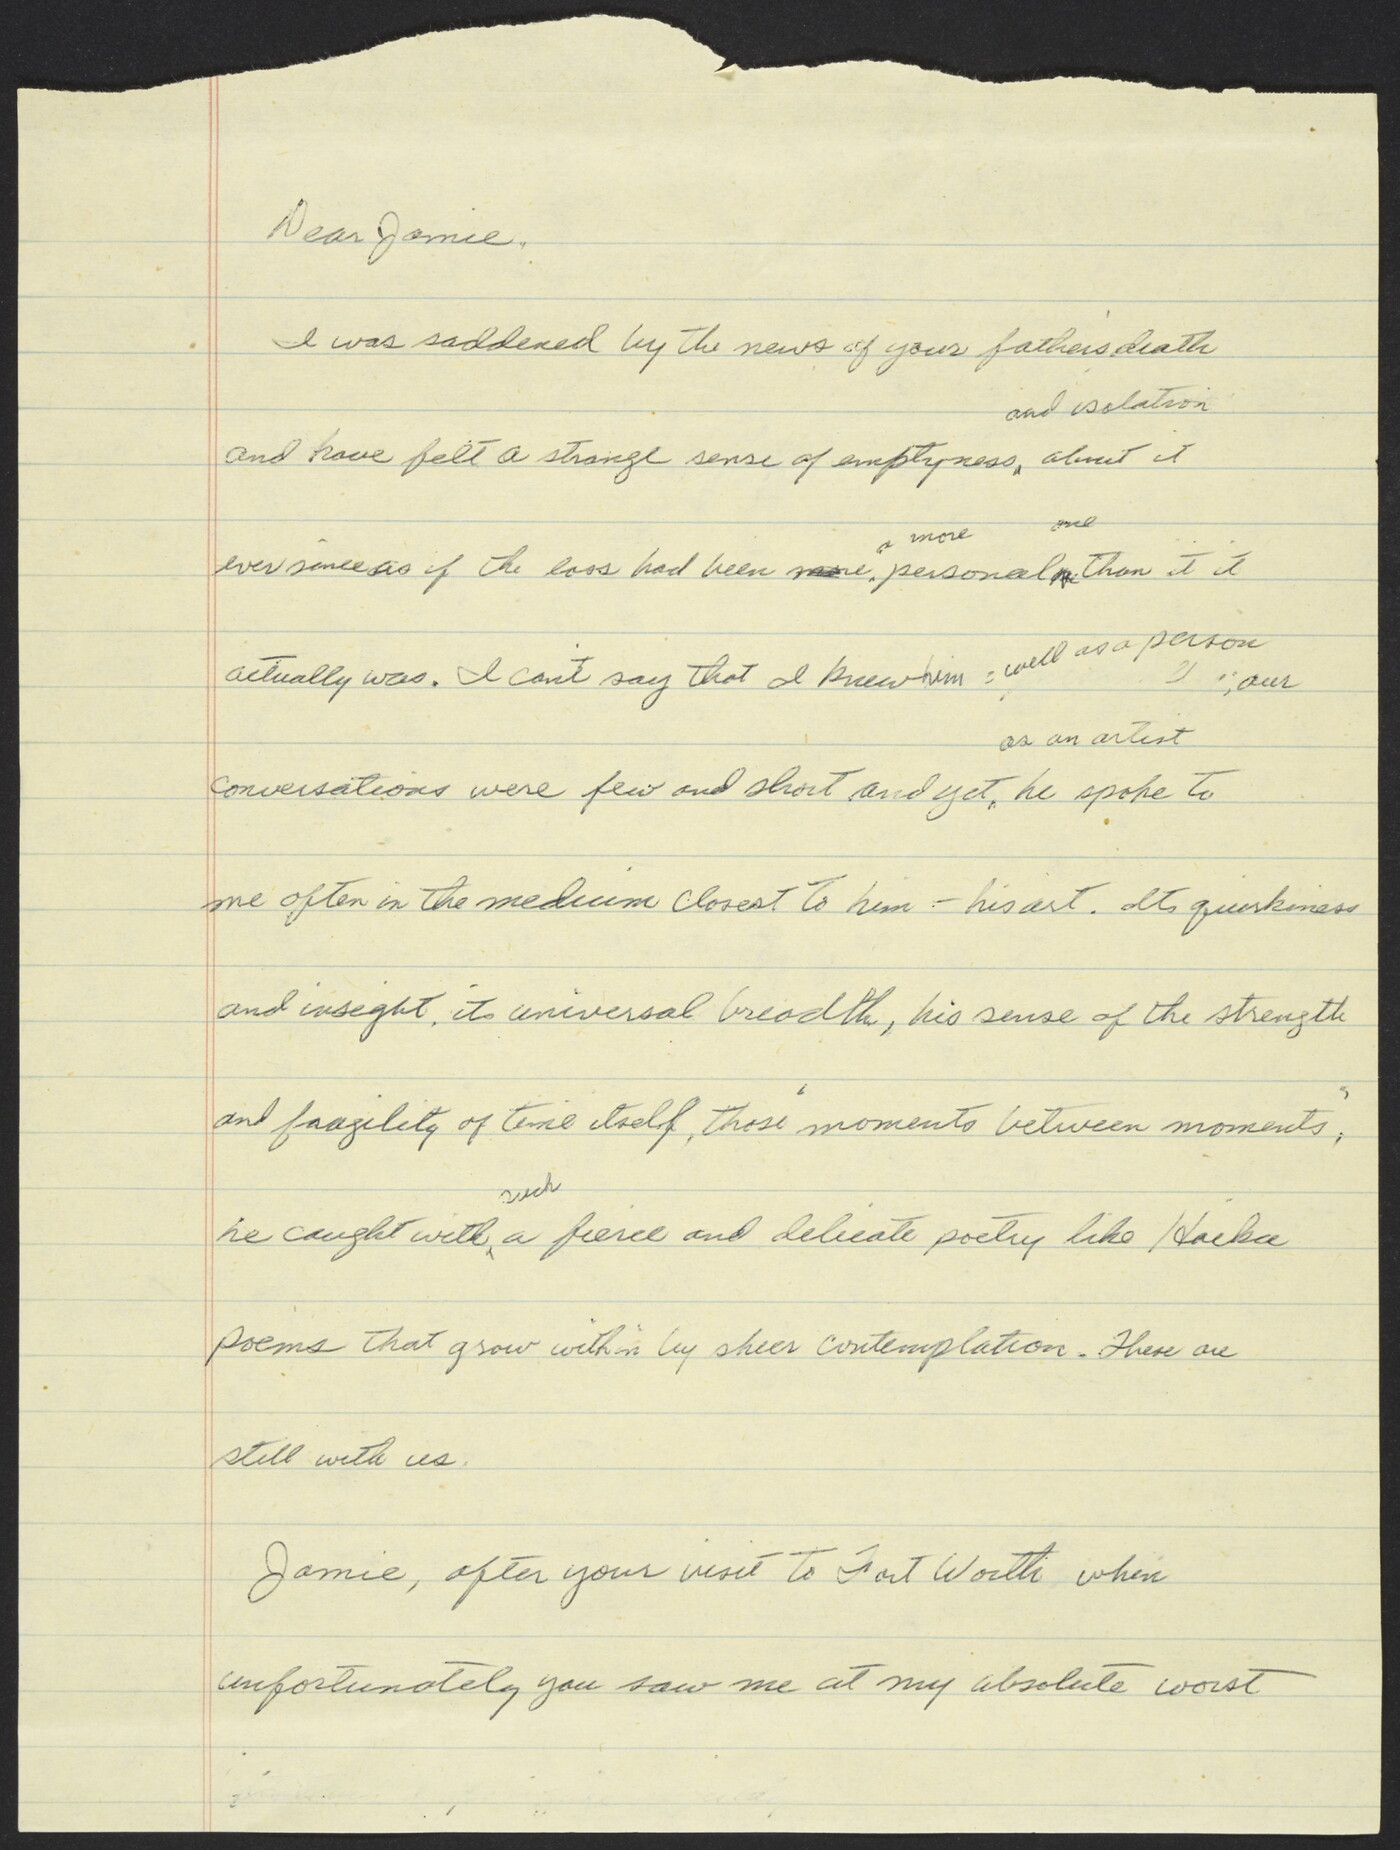 Dear Jamie,
I was saddened by the news of your father's death
and isolation
and have felt a strange sense of emptyness, about it
a more one
ever since as if the loss had been more personal than it it
actually was. I can't say that I knew him well as a person ; our
as an artist
conversations were few and short and yet, he spoke to
me often in the medium closest to him - his art. Its quirkiness
and insight, its universal breadth, his sense of the strength
and fragility of time itself, those "moments between moments",
such
he caught with a fierce and delicate poetry like Haiku
poems that grow within by sheer contemplation. These are
still with us.
Jamie, after your visit to Fort Worth when
unfortunately you saw me at my absolute worst